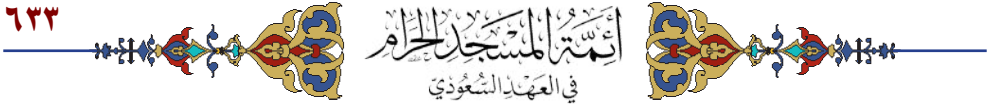 ٦٣٣
أَئِمَّةُ المَسْجِدِ الحَرَامِ
في العَهْدِ السُّعُودِيّ